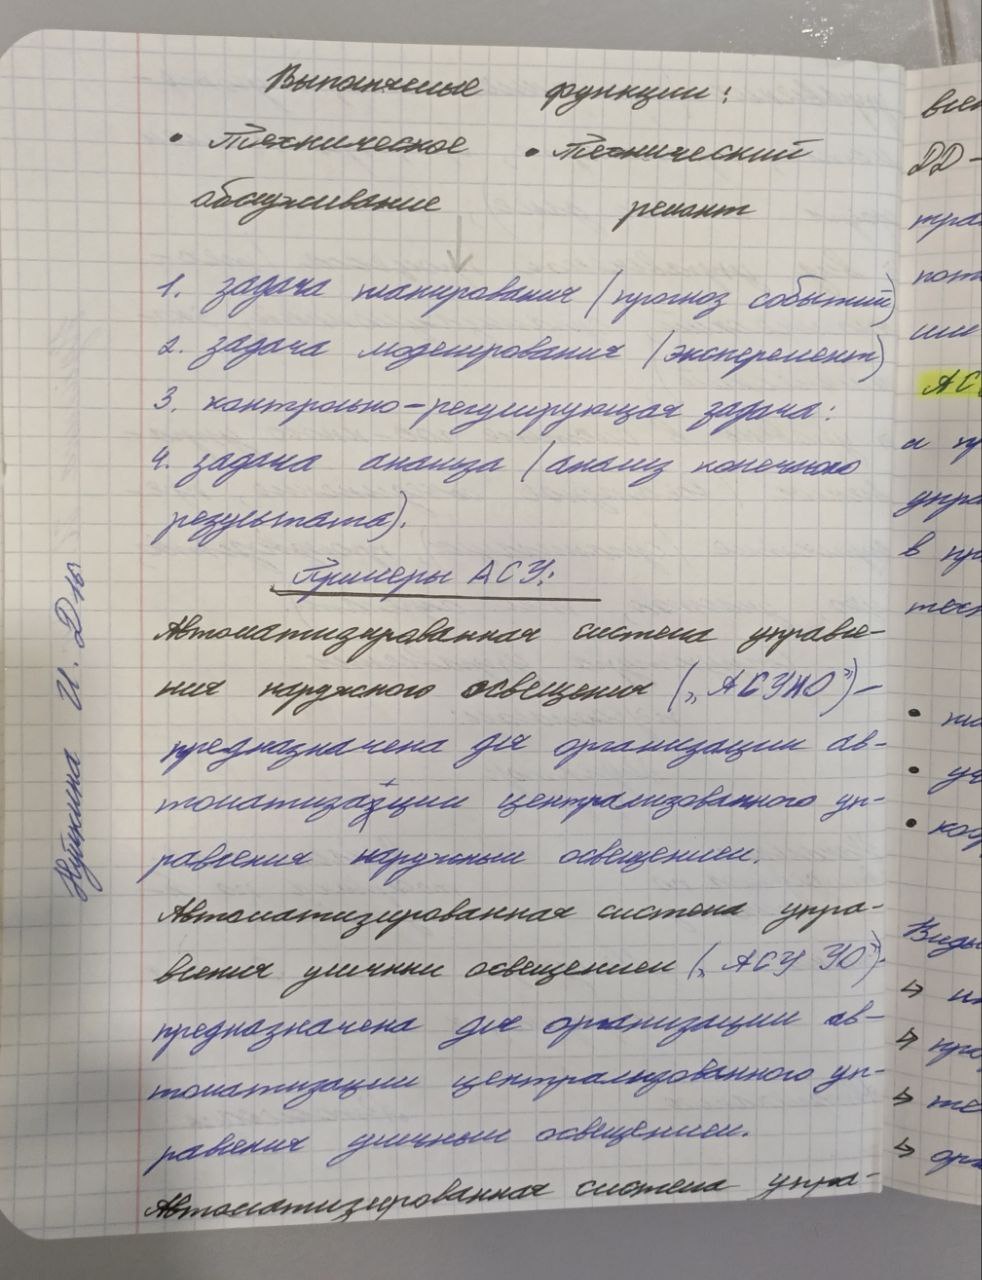 Выполняемые функции:
• Техническое • Технический
обслуживание ремонт
1. задача планирования (прогноз событий)
2. задача моделирования (эксперемент)
3. контрольно-регулирующая задача:
4. задача анализа (анализ конечного
результата).
Примеры АСУ:
Автоматизированная система управле-
ния наружного освещения („АСУНО") –
предназначена для организации ав-
томатизации централизованного уп-
равления наружным освещением.
Автоматизированная система упра-
вления уличным освещением („АСУ УО")-
предназначена для организации ав-
томатизации централизованного уп-
равления уличным освещением.
Автоматизированная система упра-
АС
а пр
упра
в пр
Виды